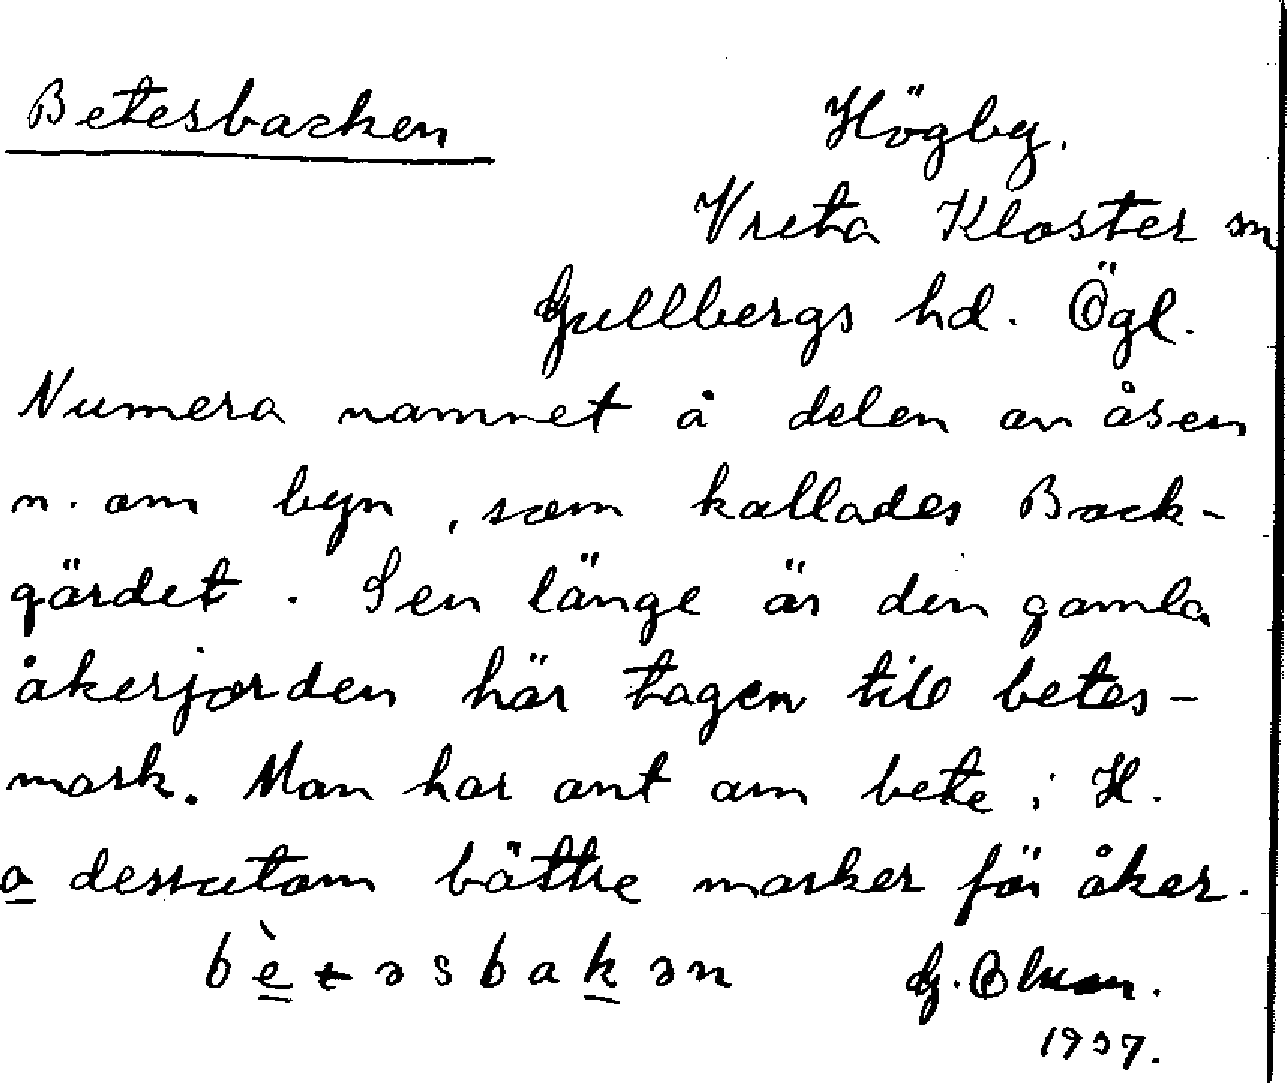 Betesbacken
Högby.
Vreta Kloster sn
Gullbergs hd. Ögl.
Numera namnet å delen av åsen
n. om byn, som kallades Back-
gärdet. Sen länge är den gamla
åkerjorden här tagen till betes-
mark. Man har ont om bete i H.
o dessutom bättre marker för åker.
bètəsbakən
G. Olson.
1937.